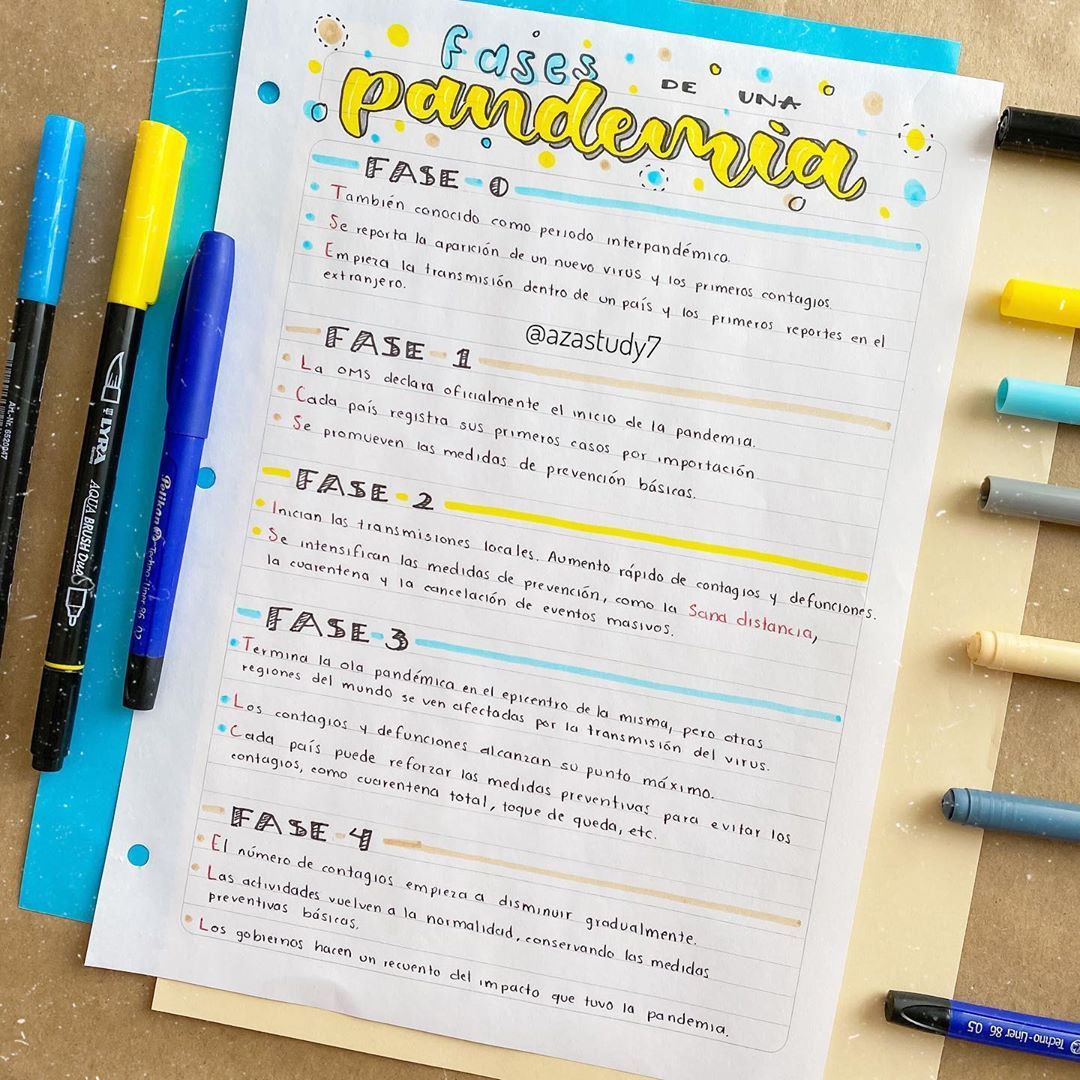 fases DE UNA
pandemia
FASE - 0
También conocido como periodo interpandémico.
Se reporta la aparición de un nuevo virus y los primeros contagios.
Empieza la transmisión dentro de un país y los primeros reportes en el
extranjero.
@azastudy7
FASE - 1
La OMS declara oficialmente el inicio de la pandemia.
Cada país registra sus primeros casos por importación
Se promueven las medidas de prevención básicas.
FASE - 2
Inician las transmisiones locales. Aumento rápido de contagios y defunciones.
Se intensifican las medidas de prevención, como la Sana distancia,
la cuarentena y la cancelación de eventos masivos.
FASE - 3
Termina la ola pandémica en el epicentro de la misma, pero otras
regiones del mundo se ven afectadas por la transmisión del virus.
Los contagios y defunciones alcanzan su punto máximo.
Cada país puede reforzar las medidas preventivas para evitar los
contagios, como cuarentena total, toque de queda, etc.
FASE - 4
El número de contagios empieza a disminuir gradualmente.
Las actividades vuelven a la normalidad, conservando las medidas
preventivas básicas.
Los gobiernos hacen un recuento del impacto que tuvo la pandemia.
Art.-Nr. 6520047
LYRA
AQUA BRUSH Duo
Pelikan Techno-Liner 86 0.5
Techno-Liner 86 0.5